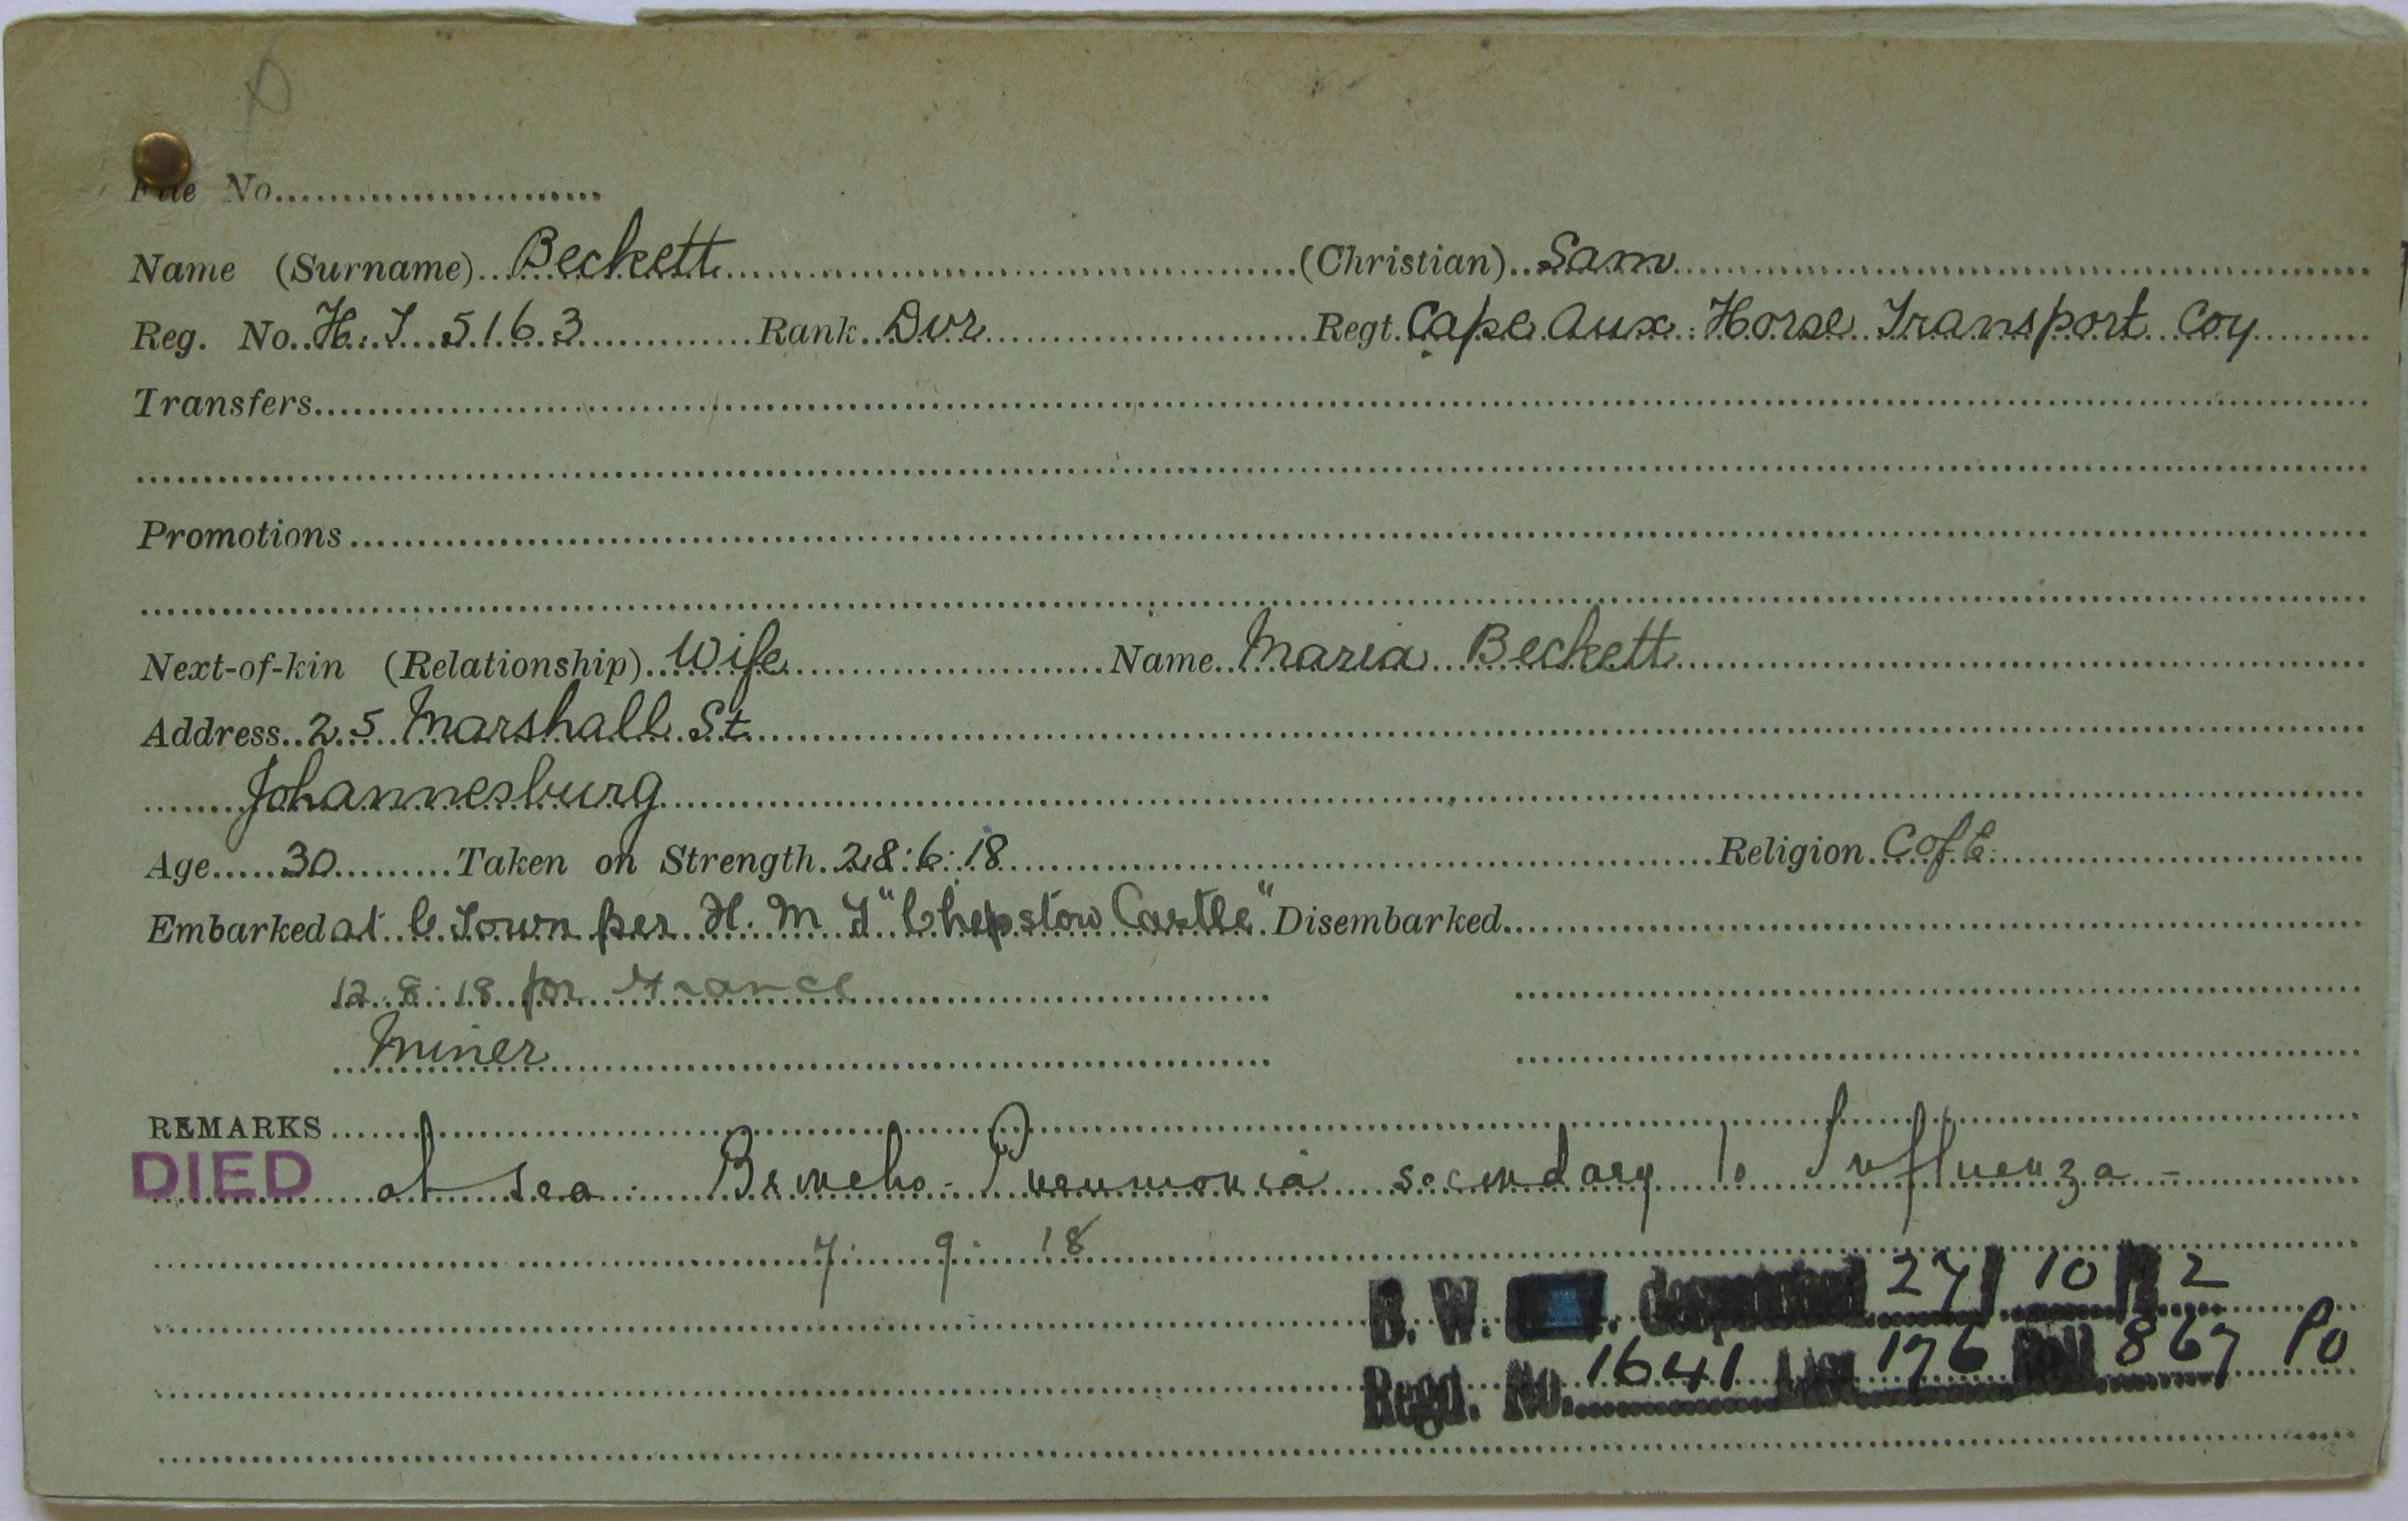 File No.
Name (Surname) Beckett (Christian) Sam
Reg. No. H. T. 5163 Rank Dvr Regt. Cape Aux. Horse Transport Coy
Transfers
Promotions
Next-of-kin (Relationship) Wife Name Maria Beckett
Address 25 Marshall St
Johannesburg
Age 30 Taken on Strength 28:6:18 Religion C of E
Embarked at C Town per H. M. T "Chepstow Castle" Disembarked
12.8.18 for France
Miner
REMARKS
DIED at sea. Broncho-Pneumonia secondary to Influenza -
7. 9. 18
B. W. despatched 27/10/ 2
Regd. No. 1641 List 176 Roll 867 Po